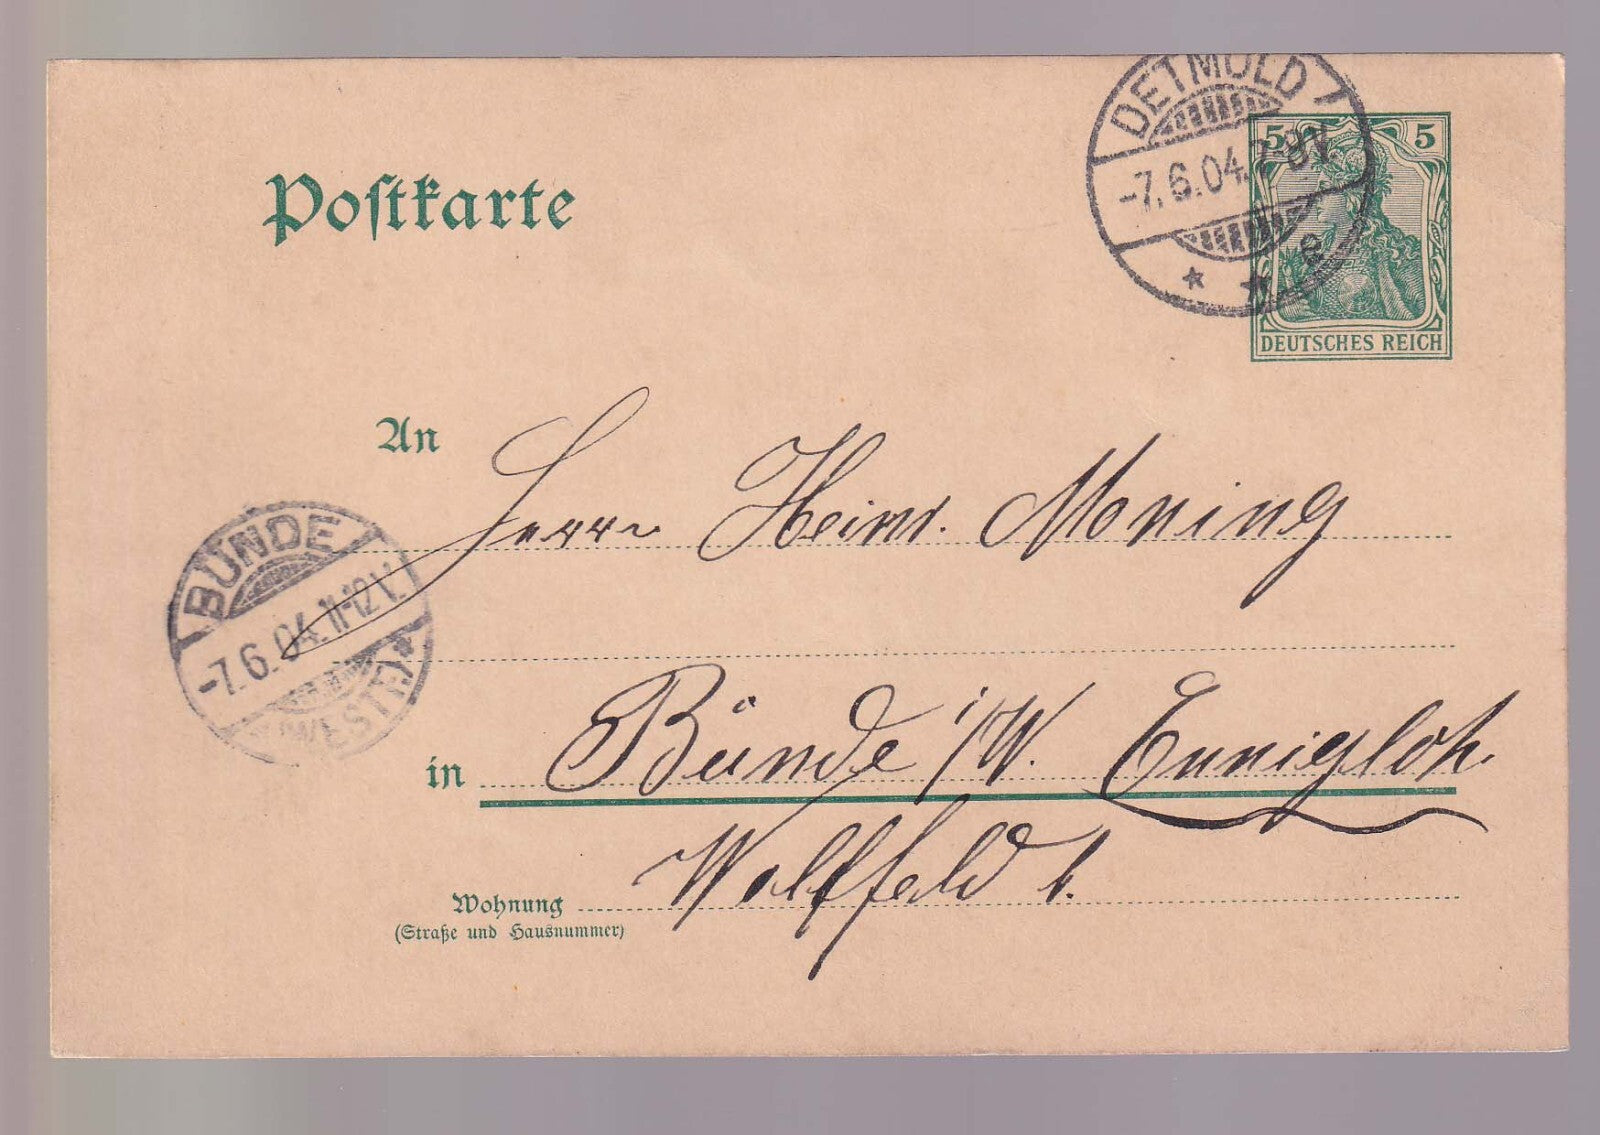 DETMOLD 1
-7.6.04. 7-8V.
* * e
5 5
DEUTSCHES REICH
Postkarte
An Herrn Heinr. Moning
BÜNDE
-7.6.04. 11-12V.
(WESTF.)*
in Bünde i/W. Ennigloh.
Wohnung
(Straße und Hausnummer)